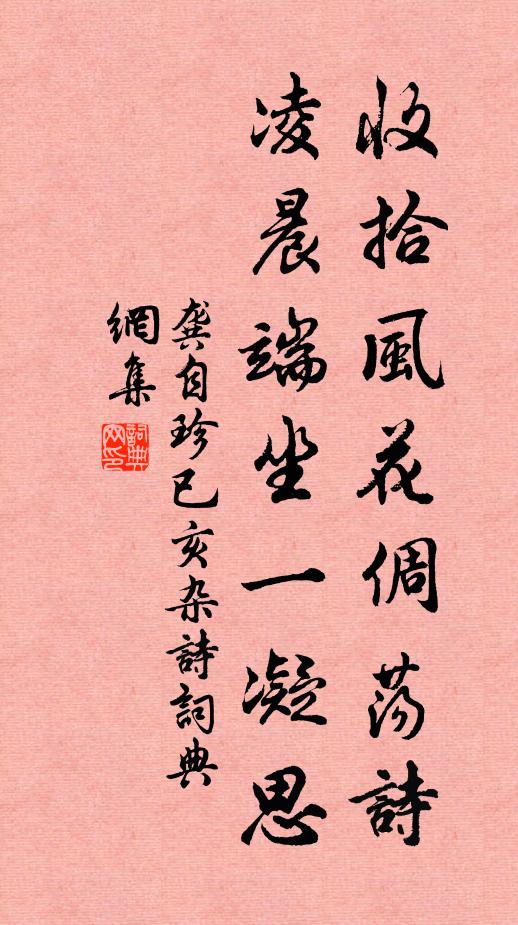 收拾風花倜蕩詩
凌晨端坐一凝思
龔自珍已亥杂詩詞典
網集
詞典
网印